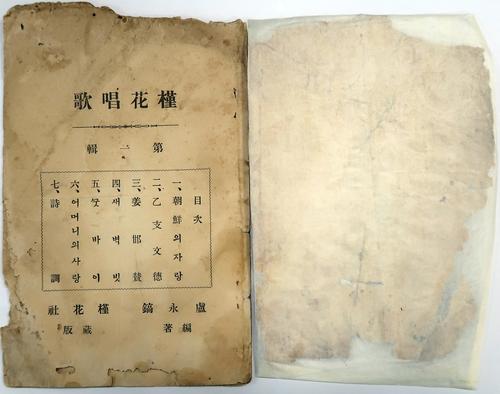 槿花唱歌
第一輯
目次
一、朝鮮의자랑
二、乙支文德
三、姜邯贊
四、새벽빗
五、굿바이
六、어머니의사랑
七、詩調
盧永鎬 編著
槿花社 蔵版